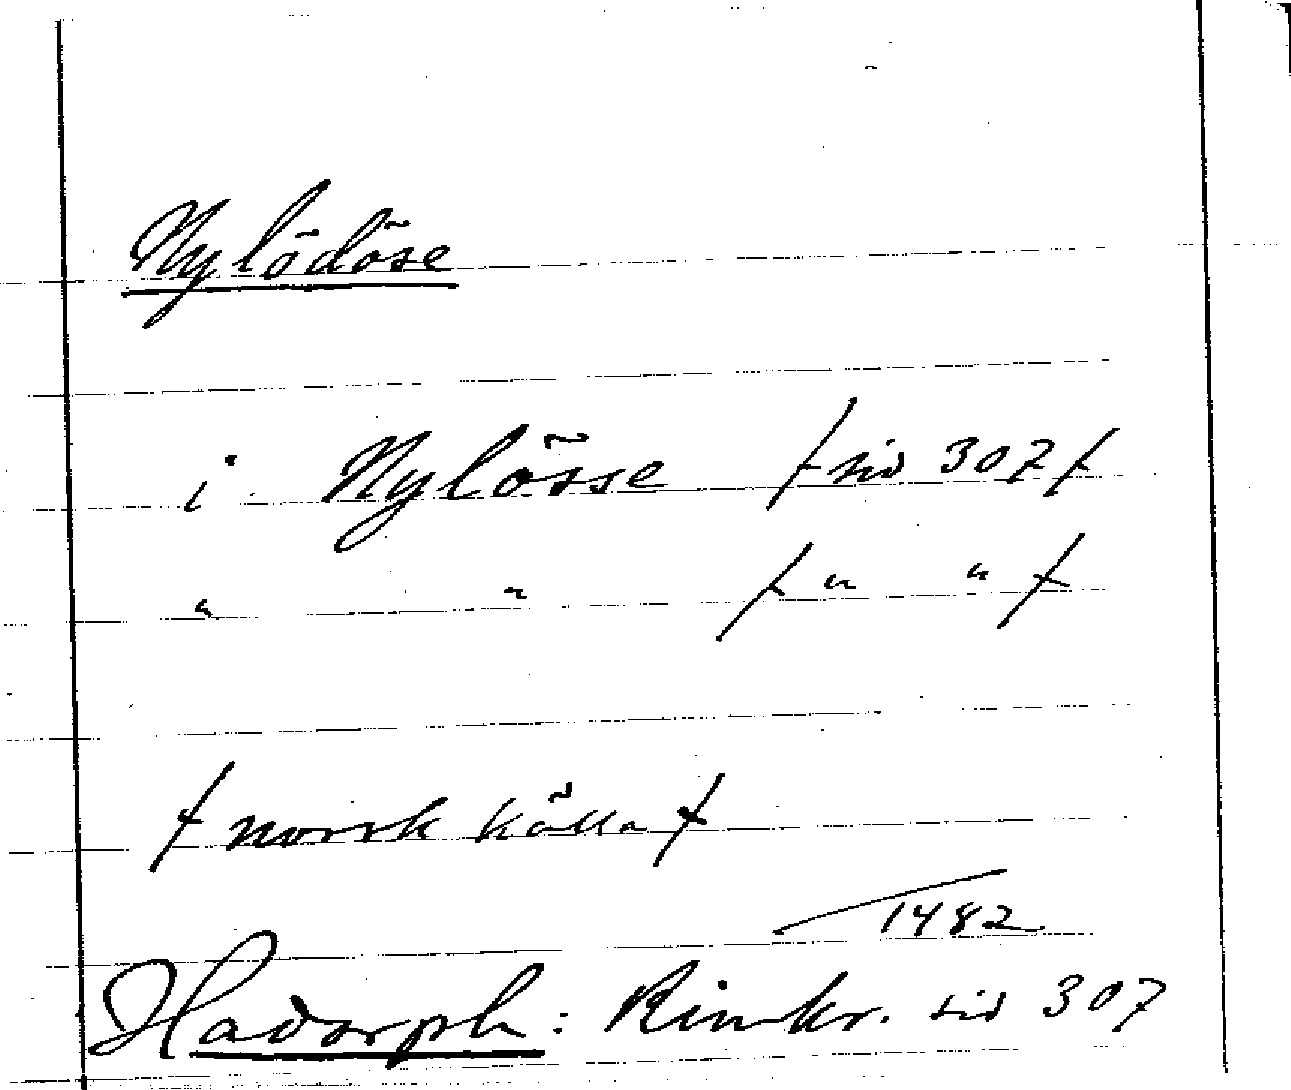 Nylödöse
i Nylösse /sid 307/
" " / " " /
/norsk källa/
1482
Hadorph: Rimkr. sid 307